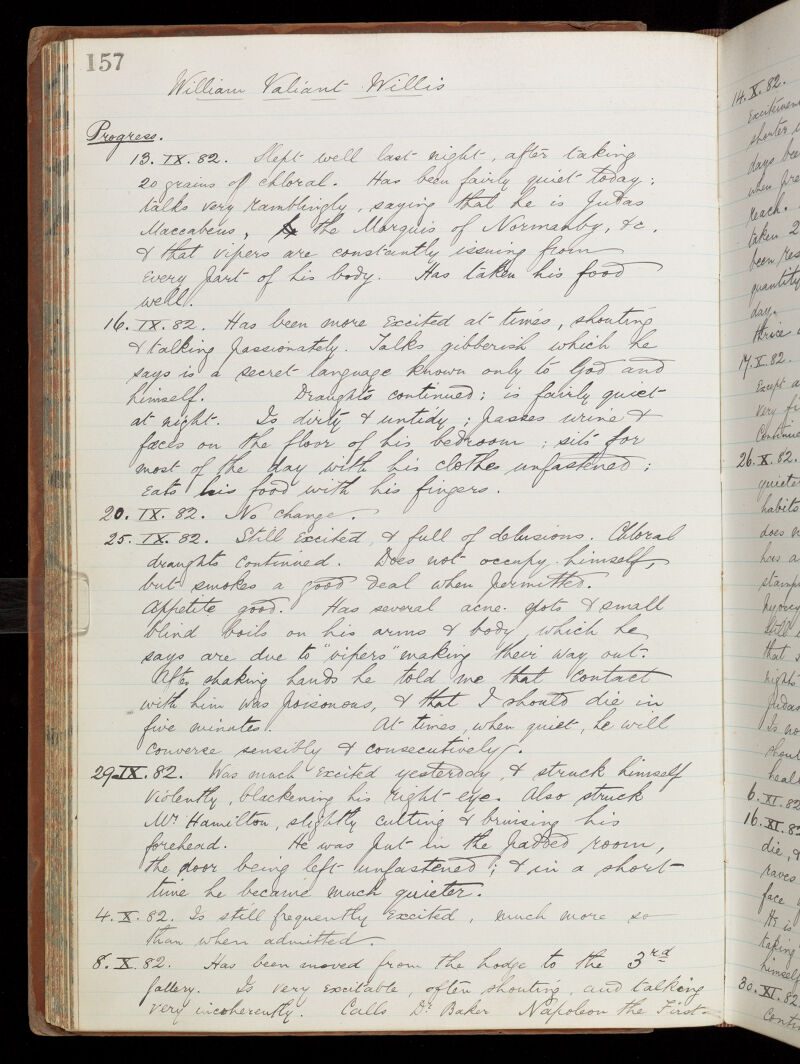 157
William Valiant Willis
Progress.
13. IX. 82. Slept well last night, after taking
20 grains of chloral. Has been fairly quiet today;
talks very ramblingly, saying that he is Judas
Maccabeus, the Marquis of Normanby, &c.
& that vipers are constantly issuing from
every part of his body. Has taken his food
well.
16. IX. 82. Has been more excited at times, shouting
& talking passionately. Talks gibberish which he
says is a secret language known only to God and
himself. Draughts continued; is fairly quiet
at night. Is dirty & untidy; passes urine &
fæces on the floor of his bedroom; sits for
most of the day with his clothes unfastened;
eats his food with his fingers.
20. IX. 82. No change.
25. IX. 82. Still excited, & full of delusions. Chloral
draughts continued. Does not occupy himself,
but smokes a good deal when permitted.
Appetite good. Has several acne spots & small
blind boils on his arms & body, which he
says are due to "vipers" making their way out.
After shaking hands he told me that contact
with him was poisonous, & that I should die in
five minutes. At times, when quiet, he will
converse sensibly & consecutively.
29. IX. 82. Was much excited yesterday, & struck himself
violently, blackening his right eye. Also struck
Mr. Hamilton, slightly cutting & bruising his
forehead. He was put in the padded room,
the door being left unfastened; & in a short
time he became much quieter.
4. X. 82. Is still frequently excited, much more so
than when admitted.
8. X. 82. Has been moved from the Lodge to the 3rd
gallery. Is very excitable, often shouting, and talking
very incoherently. Calls Dr. Baker Napoleon the First
14. X. 82.
Excitement
shorter
days been
when
reach.
taken 2
been res
quantity
day.
thrice
17. X. 82.
Except a
very
Continue
26. X. 82.
quieter
habits
does n
has a
stamp
hyoscy
Still
that
nights
Judas
Is no
shout
heal
6. XI. 82
16. XI. 82
die, &
raves
face
He is
taking
himself
30. XI. 82
Conti